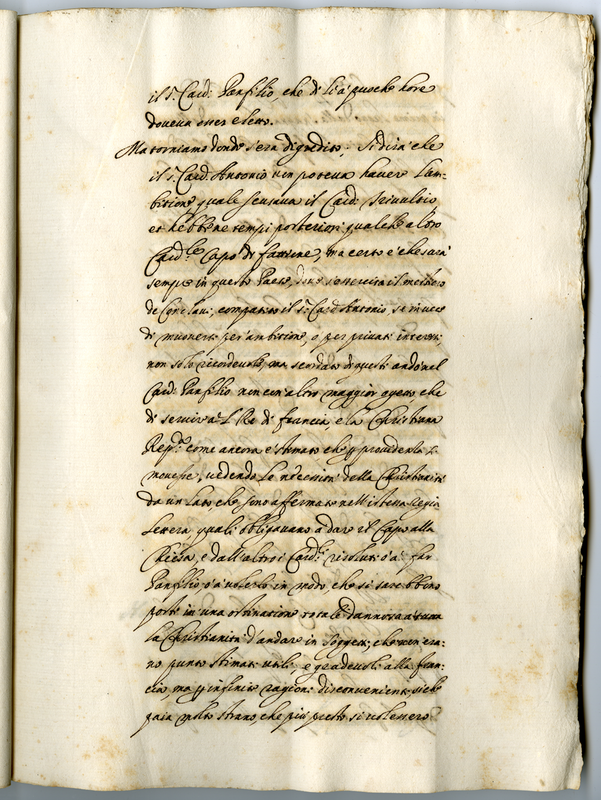 il S.r Card: Panfilio, che di li à puoche hore
doveva esser eletto.
Ma torniamo donde s'era digredito; Si dirà che
il S.r Card: Antonio non poteva havere l'am-
bitione, quale scusava il Card: Trivultio,
et hebbe ne tempi posteriori qualche altro
Card.le Capo di fattione, ma certo è che sarà
sempre in questo Paese, dove s'essercita il mestiero
de Conclavi, compatito il S.r Card Antonio, se in vece
di muoversi per ambitione, o per privati interessi,
non solo ricordevole, ma scordato di questi andò nel
Card: Panfilio non con altro maggior oggetto, che
di servire al Re di francia, e la Christiana
Rep.ca come ancora è stimato che p providenti
mouesse, vedendo le necessità della Christianità
da un lato che sono affermate nell'istessa Regia
lettera, quali obligavano a dare il Capo alla
Chiesa, e dall'altro i Card.li risoluti ò à far
Panfilio ò à volerlo in modo, che si sarebbino
posti in una ostinatione totale dannosa a tutta
la Christianità d'andare in soggetti, che non era-
no punto stimati utili, e gradevoli alla fran-
cia, ma p infinite ragioni disconvenienti, si che
paia molto strano, che più presto si volessero